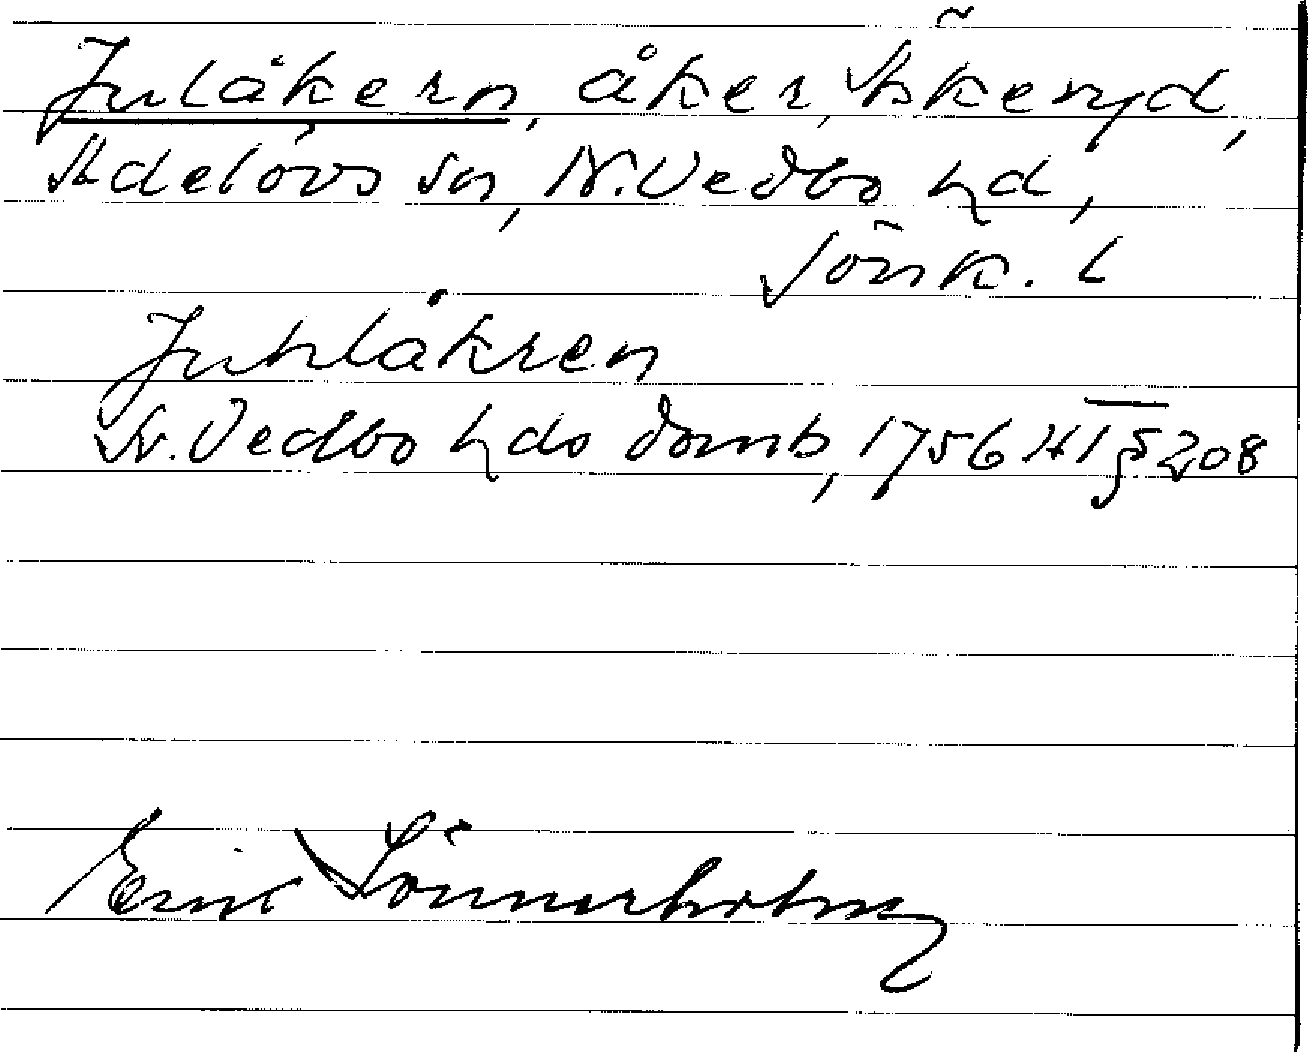 Julåkern, åker, Äskeryd,
Adelövs sn, N. Vedbo hd,
Jönk. l
Juhlåkren
N. Vedbo hds domb, 1756 HT § 208
Eric Lönnerholm